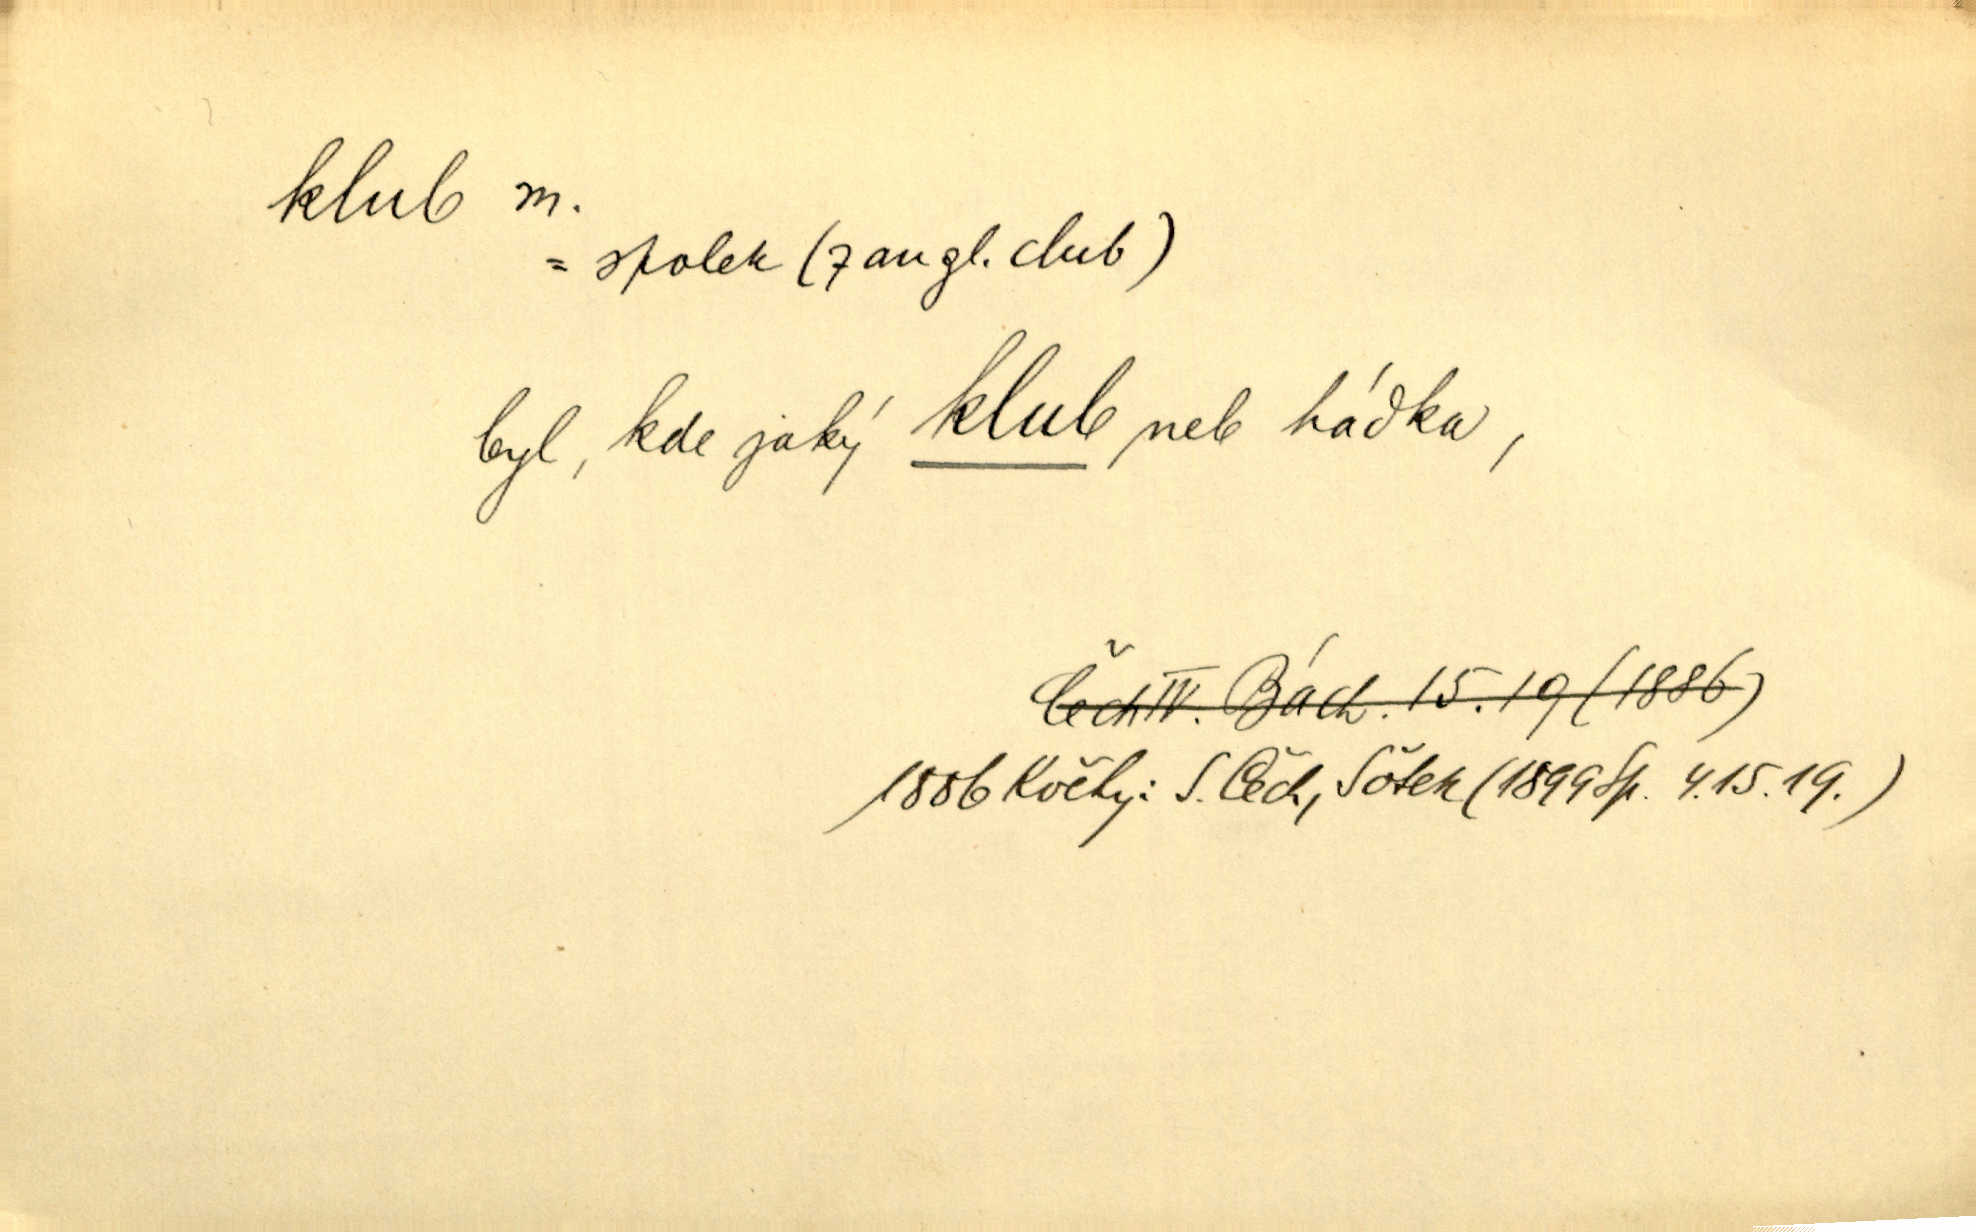 klub m.
= spolek (z angl. club)
byl, kde jaký klub neb hádka,
Čech IV. Bách. 15.19 (1886)
1886 Květy: S. Čech, Šotek (1899 Sp. 4.15.19.)